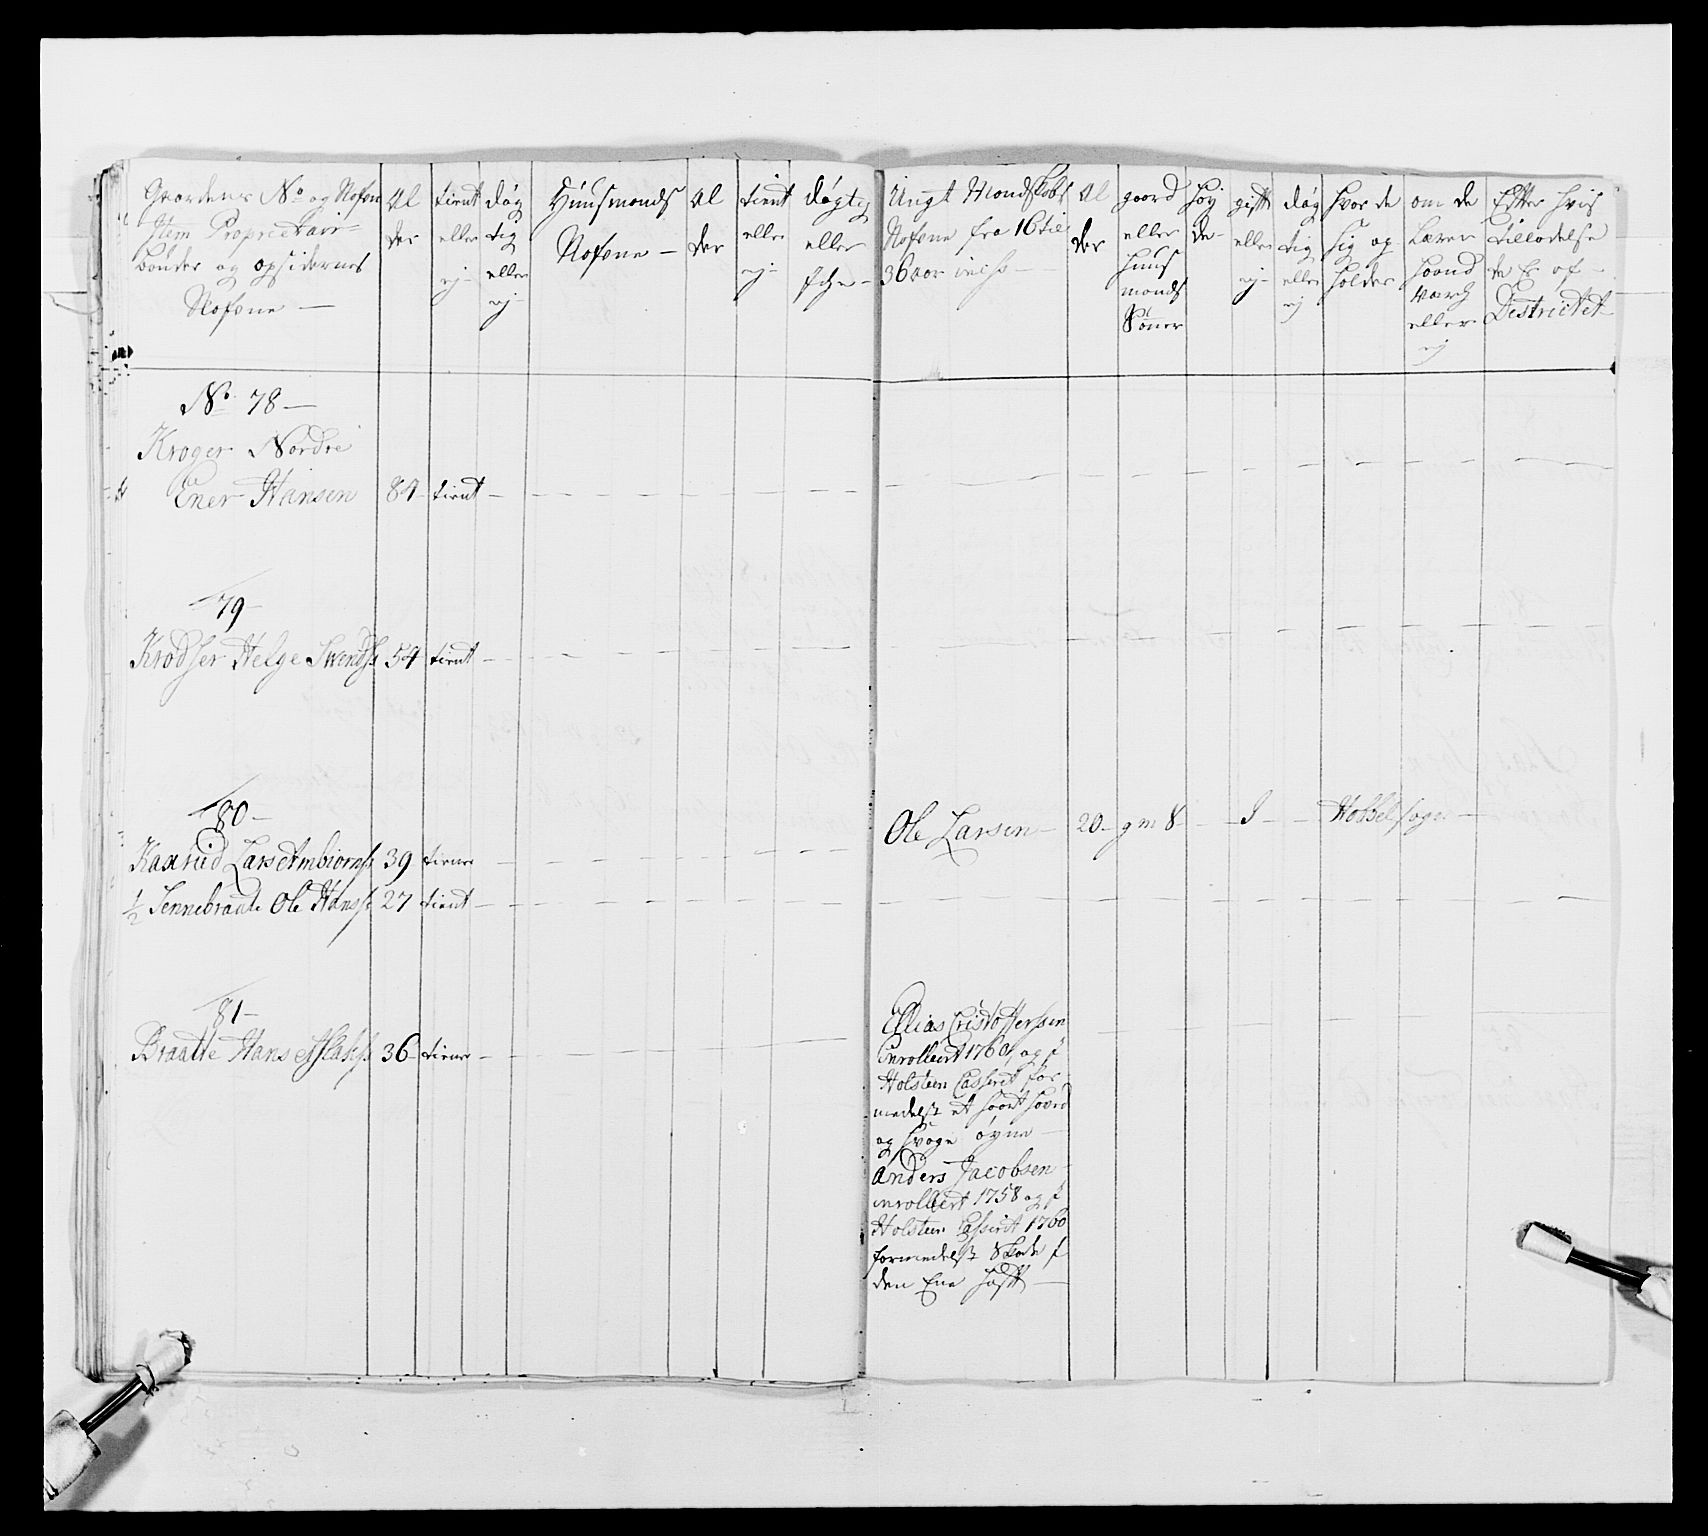 Gaardens No og Nafne
Item Proprietair
bønder og opsidernes
Nafne —
Al
der
tient
eller
ej
døg
tig
eller
ej
Huusmands
Nafne —
Al
der
tient
eller
ej
døgtig
eller
Ungt Mandskabs
Nafne fra 16 til
36 aar incl:
Al
der
gaard
eller
huus
mands
Sönner
høy
de
gift
eller
ej
døg
tig
eller
ej
hvor de
sig op
holder
om de
Lærer
haand
værk
eller
ej
Efter hvis
tilladelse
de Er af
Districtet
No 78 —
Kroger Nordre
Ener Hansen 84 tient —
79 —
Krodser Helge Swends: 54 tient —
80 —
Kaxrud Lars Ambiorns: 39 tiener
Ole Larsen — 20 — g m S — J — Hobbel sogn —
1/2 Tennebraate Ole Hanss: 27 tient —
81 —
Braatte Hans Aslachs: 36 — tiener —
Ellias Cristoffersen
enrollert 1760, og f
Holsteen Casseret for
medelst et haart hoved
og svage øyne —
Anders Jacobsen
enrollert 1758 og f
Holsteen Casseret 1760
formedelst Skade f
den Ene haft —